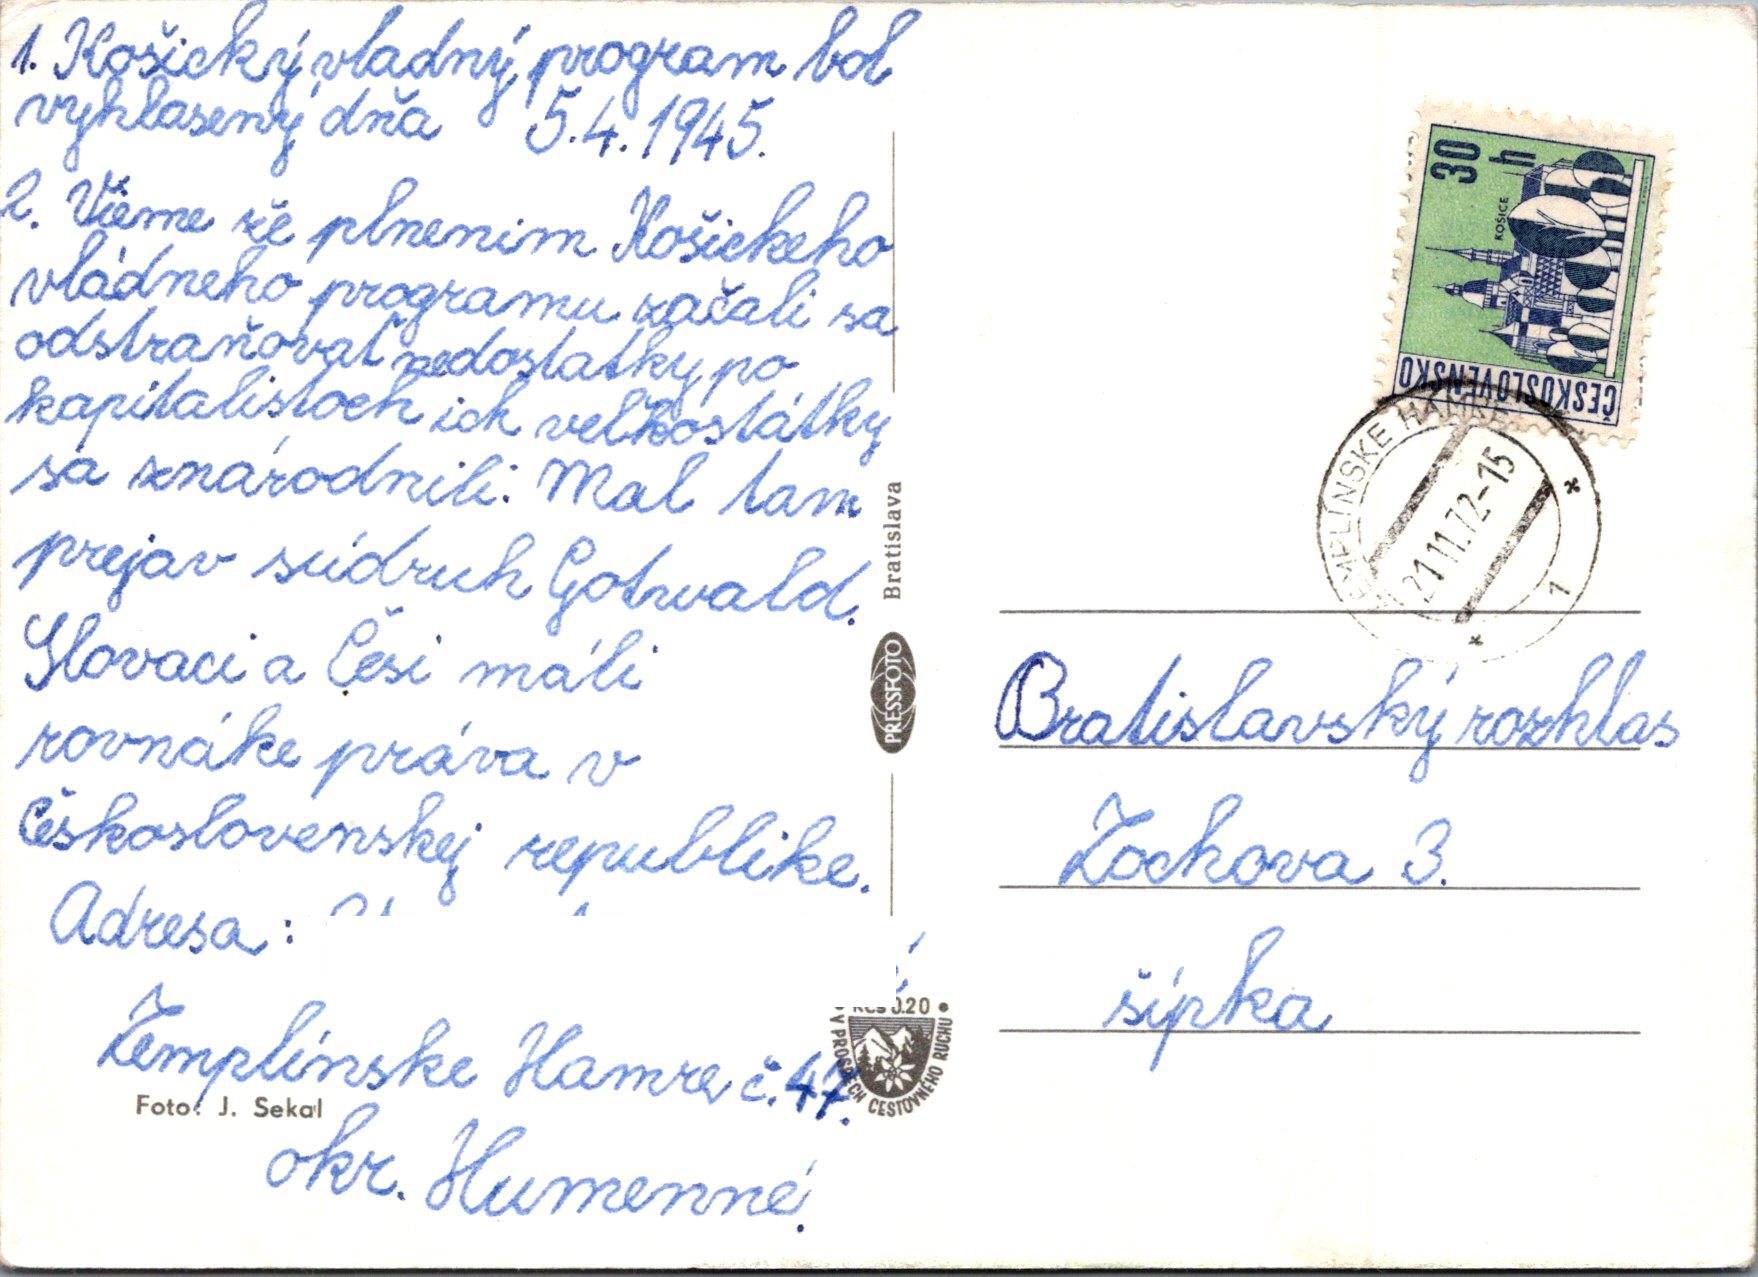 1. Košický vladný program bol
vyhlasený dňa 5.4.1945.
2. Vieme že plnenim Košickeho
vládneho programu začali sa
odstraňovat nedostatky po
kapitalistoch ich velkostátky
sa znárodnili. Mal tam
prejav súdruh Gotwald.
Slovaci a Česi máli
rovnáke práva v
Československej republike.
Adresa:
Zemplínske Hamre č. 47.
okr. Humenné.
Foto: J. Sekal
Bratislava
PRESSFOTO
Kčs 0.20
V PROSPECH CESTOVNÉHO RUCHU
30 h
KOŠICE
ČESKOSLOVENSKO
ZEMPLÍNSKE HAMRE
21 11.72-15
1
Bratislavský rozhlas
Zochova 3.
šípka